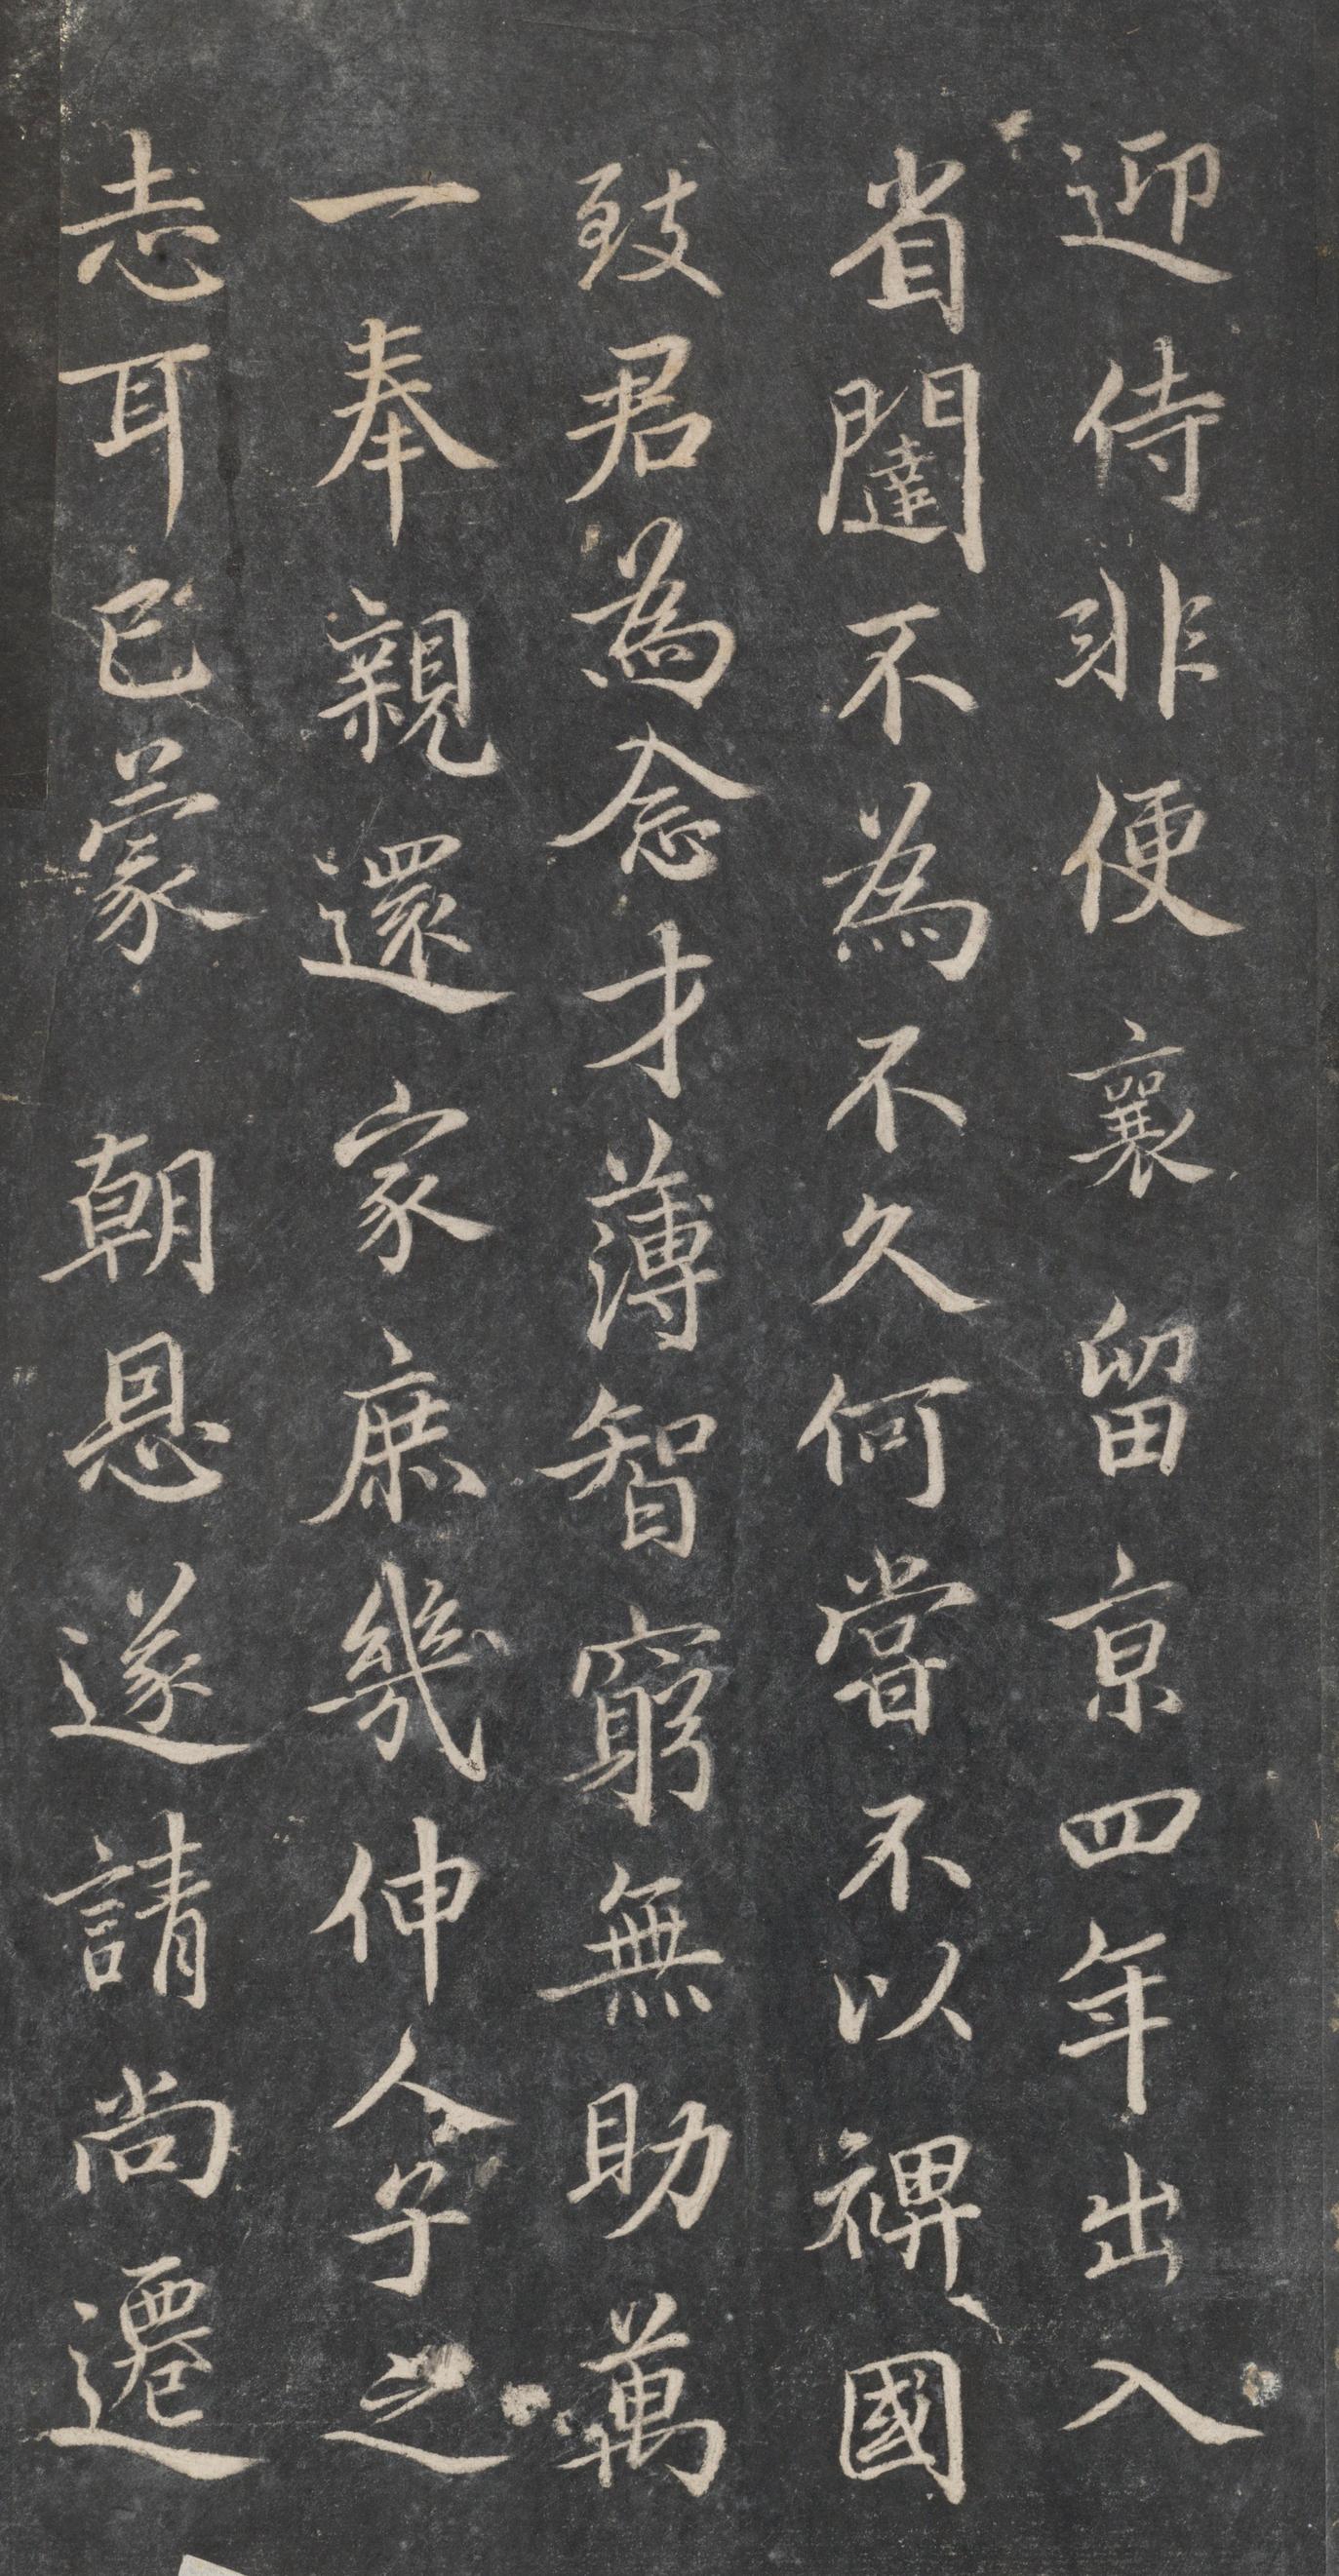 迎侍非便襄留京四年出入
省闥不為不久何嘗不以裨國
致君為念才薄智窮無助萬
一奉親還家庶幾伸人子之
志耳已蒙朝恩遂請尚遷